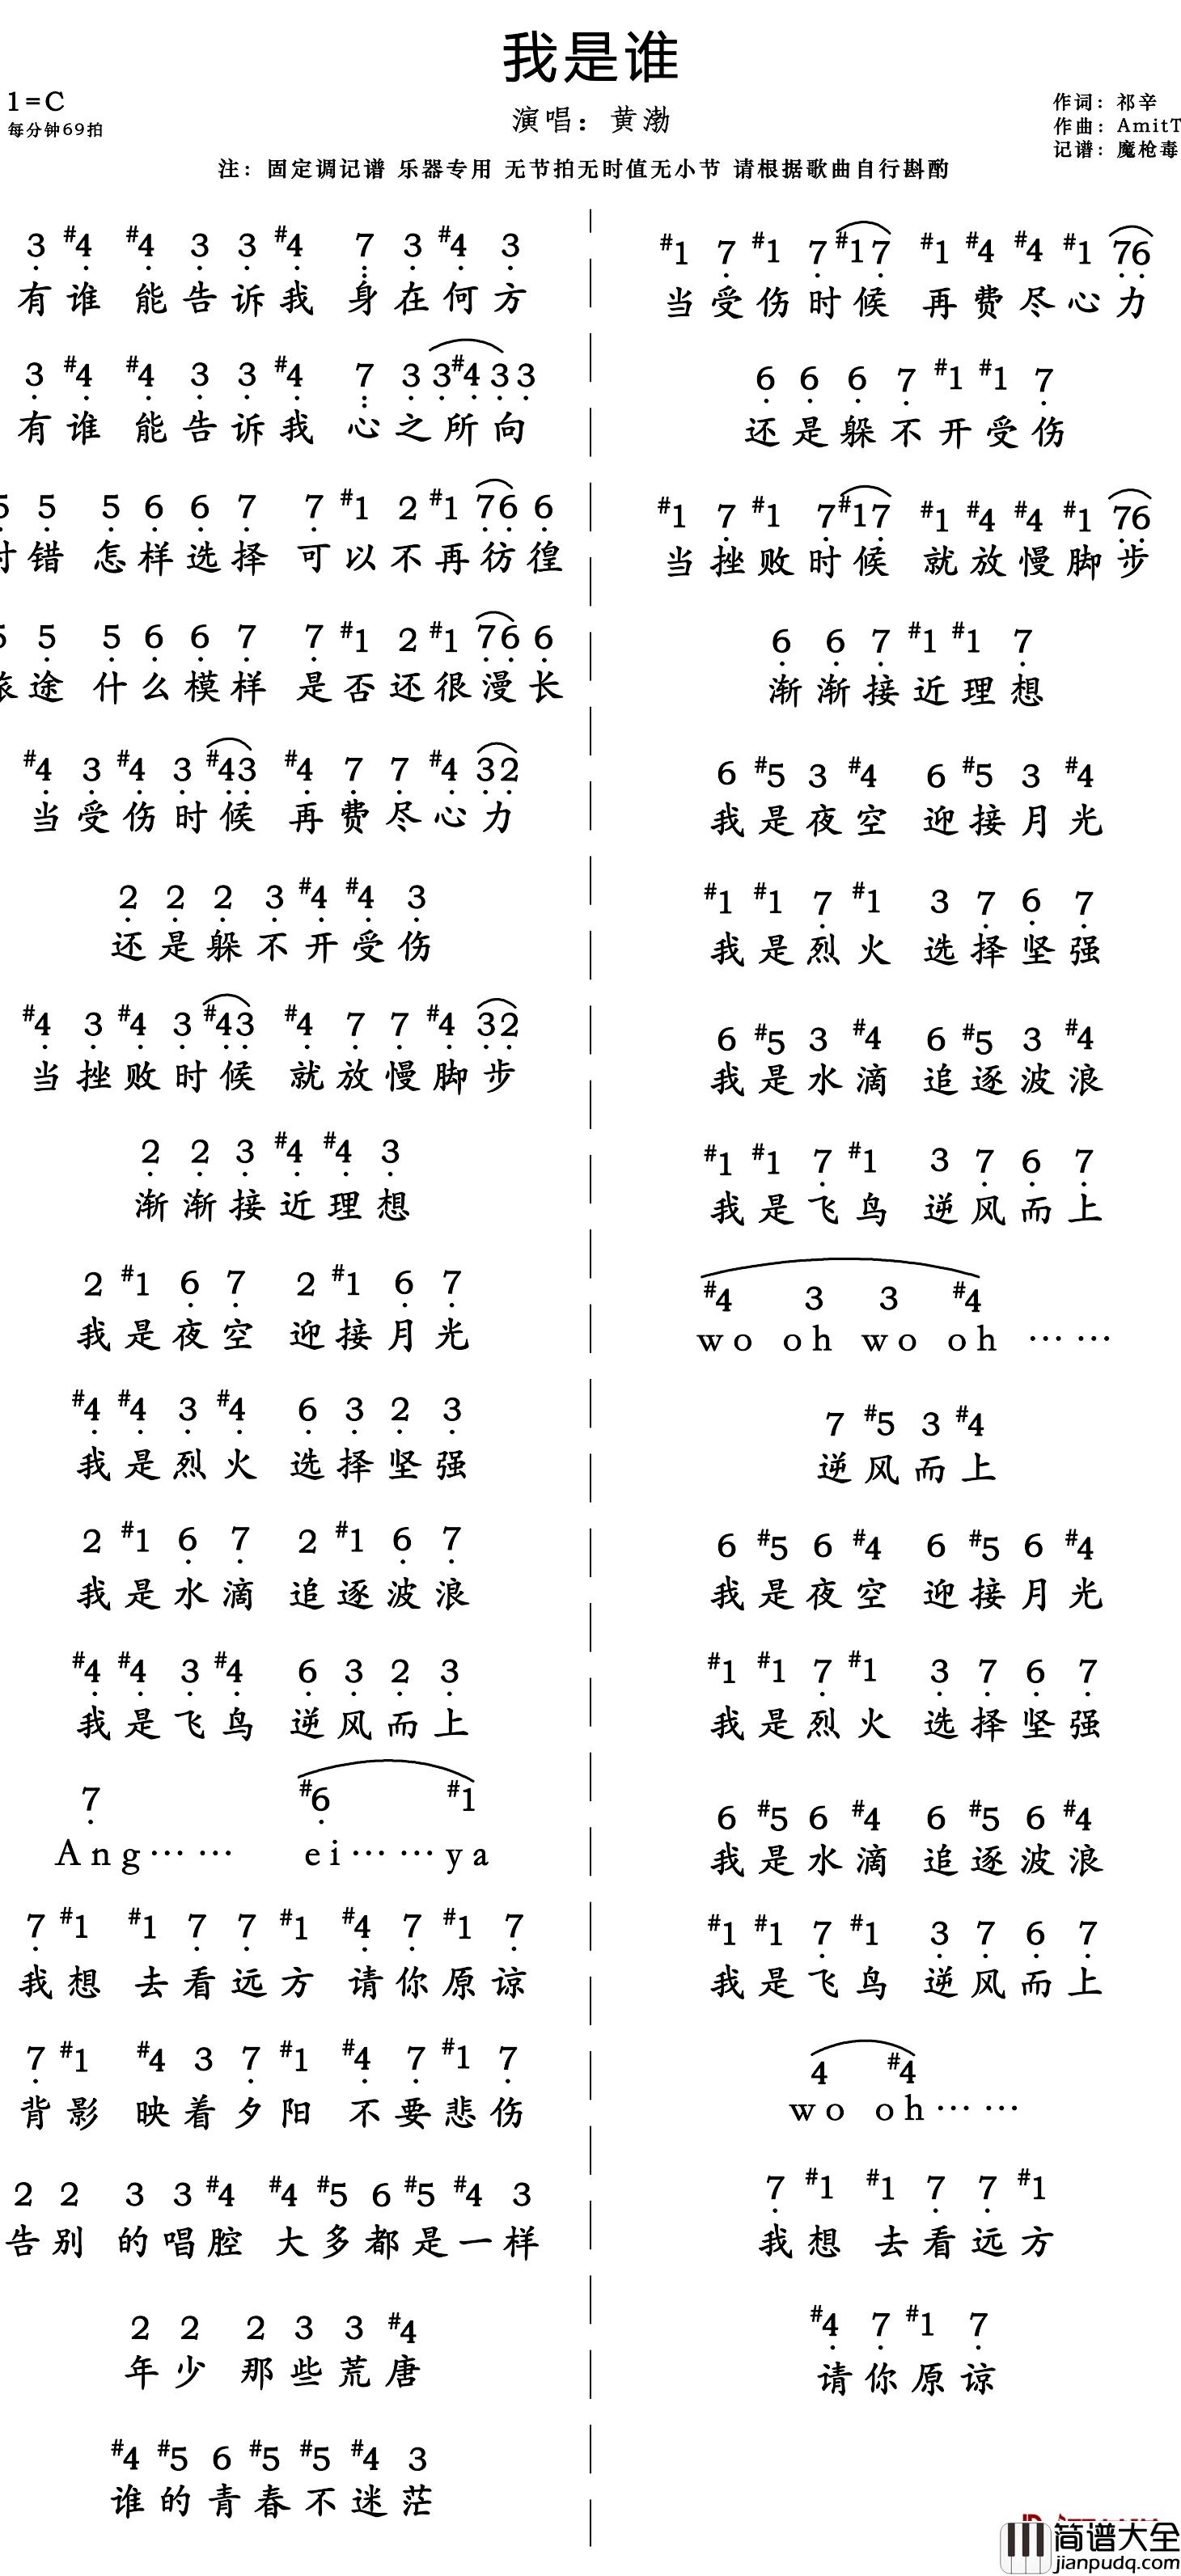 我是谁
1=C
每分钟69拍
演唱：黄渤
作词：祁辛
作曲：AmitT
记谱：魔枪毒
注：固定调记谱 乐器专用 无节拍无时值无小节 请根据歌曲自行斟酌
3 #4 #4 3 3 #4 7 3 #4 3
有谁 能告诉我 身在何方
3 #4 #4 3 3 #4 7 3 3 #4 3 3
有谁 能告诉我 心之所向
5 5 5 6 6 7 7 #1 2 #1 7 6 6
错 怎样选择 可以不再彷徨
5 5 5 6 6 7 7 #1 2 #1 7 6 6
途 什么模样 是否还很漫长
#4 3 #4 3 #4 3 #4 7 7 #4 3 2
当受伤时候 再费尽心力
2 2 2 3 #4 #4 3
还是躲不开受伤
#4 3 #4 3 #4 3 #4 7 7 #4 3 2
当挫败时候 就放慢脚步
2 2 3 #4 #4 3
渐渐接近理想
2 #1 6 7 2 #1 6 7
我是夜空 迎接月光
#4 #4 3 #4 6 3 2 3
我是烈火 选择坚强
2 #1 6 7 2 #1 6 7
我是水滴 追逐波浪
#4 #4 3 #4 6 3 2 3
我是飞鸟 逆风而上
7 #6 #1
Ang…… ei……ya
7 #1 #1 7 7 #1 #4 7 #1 7
我想 去看远方 请你原谅
7 #1 #4 3 7 #1 #4 7 #1 7
背影 映着夕阳 不要悲伤
2 2 3 3 #4 #4 #5 6 #5 #4 3
告别 的唱腔 大多都是一样
2 2 2 3 3 #4
年少 那些荒唐
#4 #5 6 #5 #5 #4 3
谁的青春不迷茫
#1 7 #1 7 #1 7 #1 #4 #4 #1 7 6
当受伤时候 再费尽心力
6 6 6 7 #1 #1 7
还是躲不开受伤
#1 7 #1 7 #1 7 #1 #4 #4 #1 7 6
当挫败时候 就放慢脚步
6 6 7 #1 #1 7
渐渐接近理想
6 #5 3 #4 6 #5 3 #4
我是夜空 迎接月光
#1 #1 7 #1 3 7 6 7
我是烈火 选择坚强
6 #5 3 #4 6 #5 3 #4
我是水滴 追逐波浪
#1 #1 7 #1 3 7 6 7
我是飞鸟 逆风而上
#4 3 3 #4
wo oh wo oh ……
7 #5 3 #4
逆风而上
6 #5 6 #4 6 #5 6 #4
我是夜空 迎接月光
#1 #1 7 #1 3 7 6 7
我是烈火 选择坚强
6 #5 6 #4 6 #5 6 #4
我是水滴 追逐波浪
#1 #1 7 #1 3 7 6 7
我是飞鸟 逆风而上
4 #4
wo oh……
7 #1 #1 7 7 #1
我想 去看远方
#4 7 #1 7
请你原谅
简谱大全
jianpudq.com